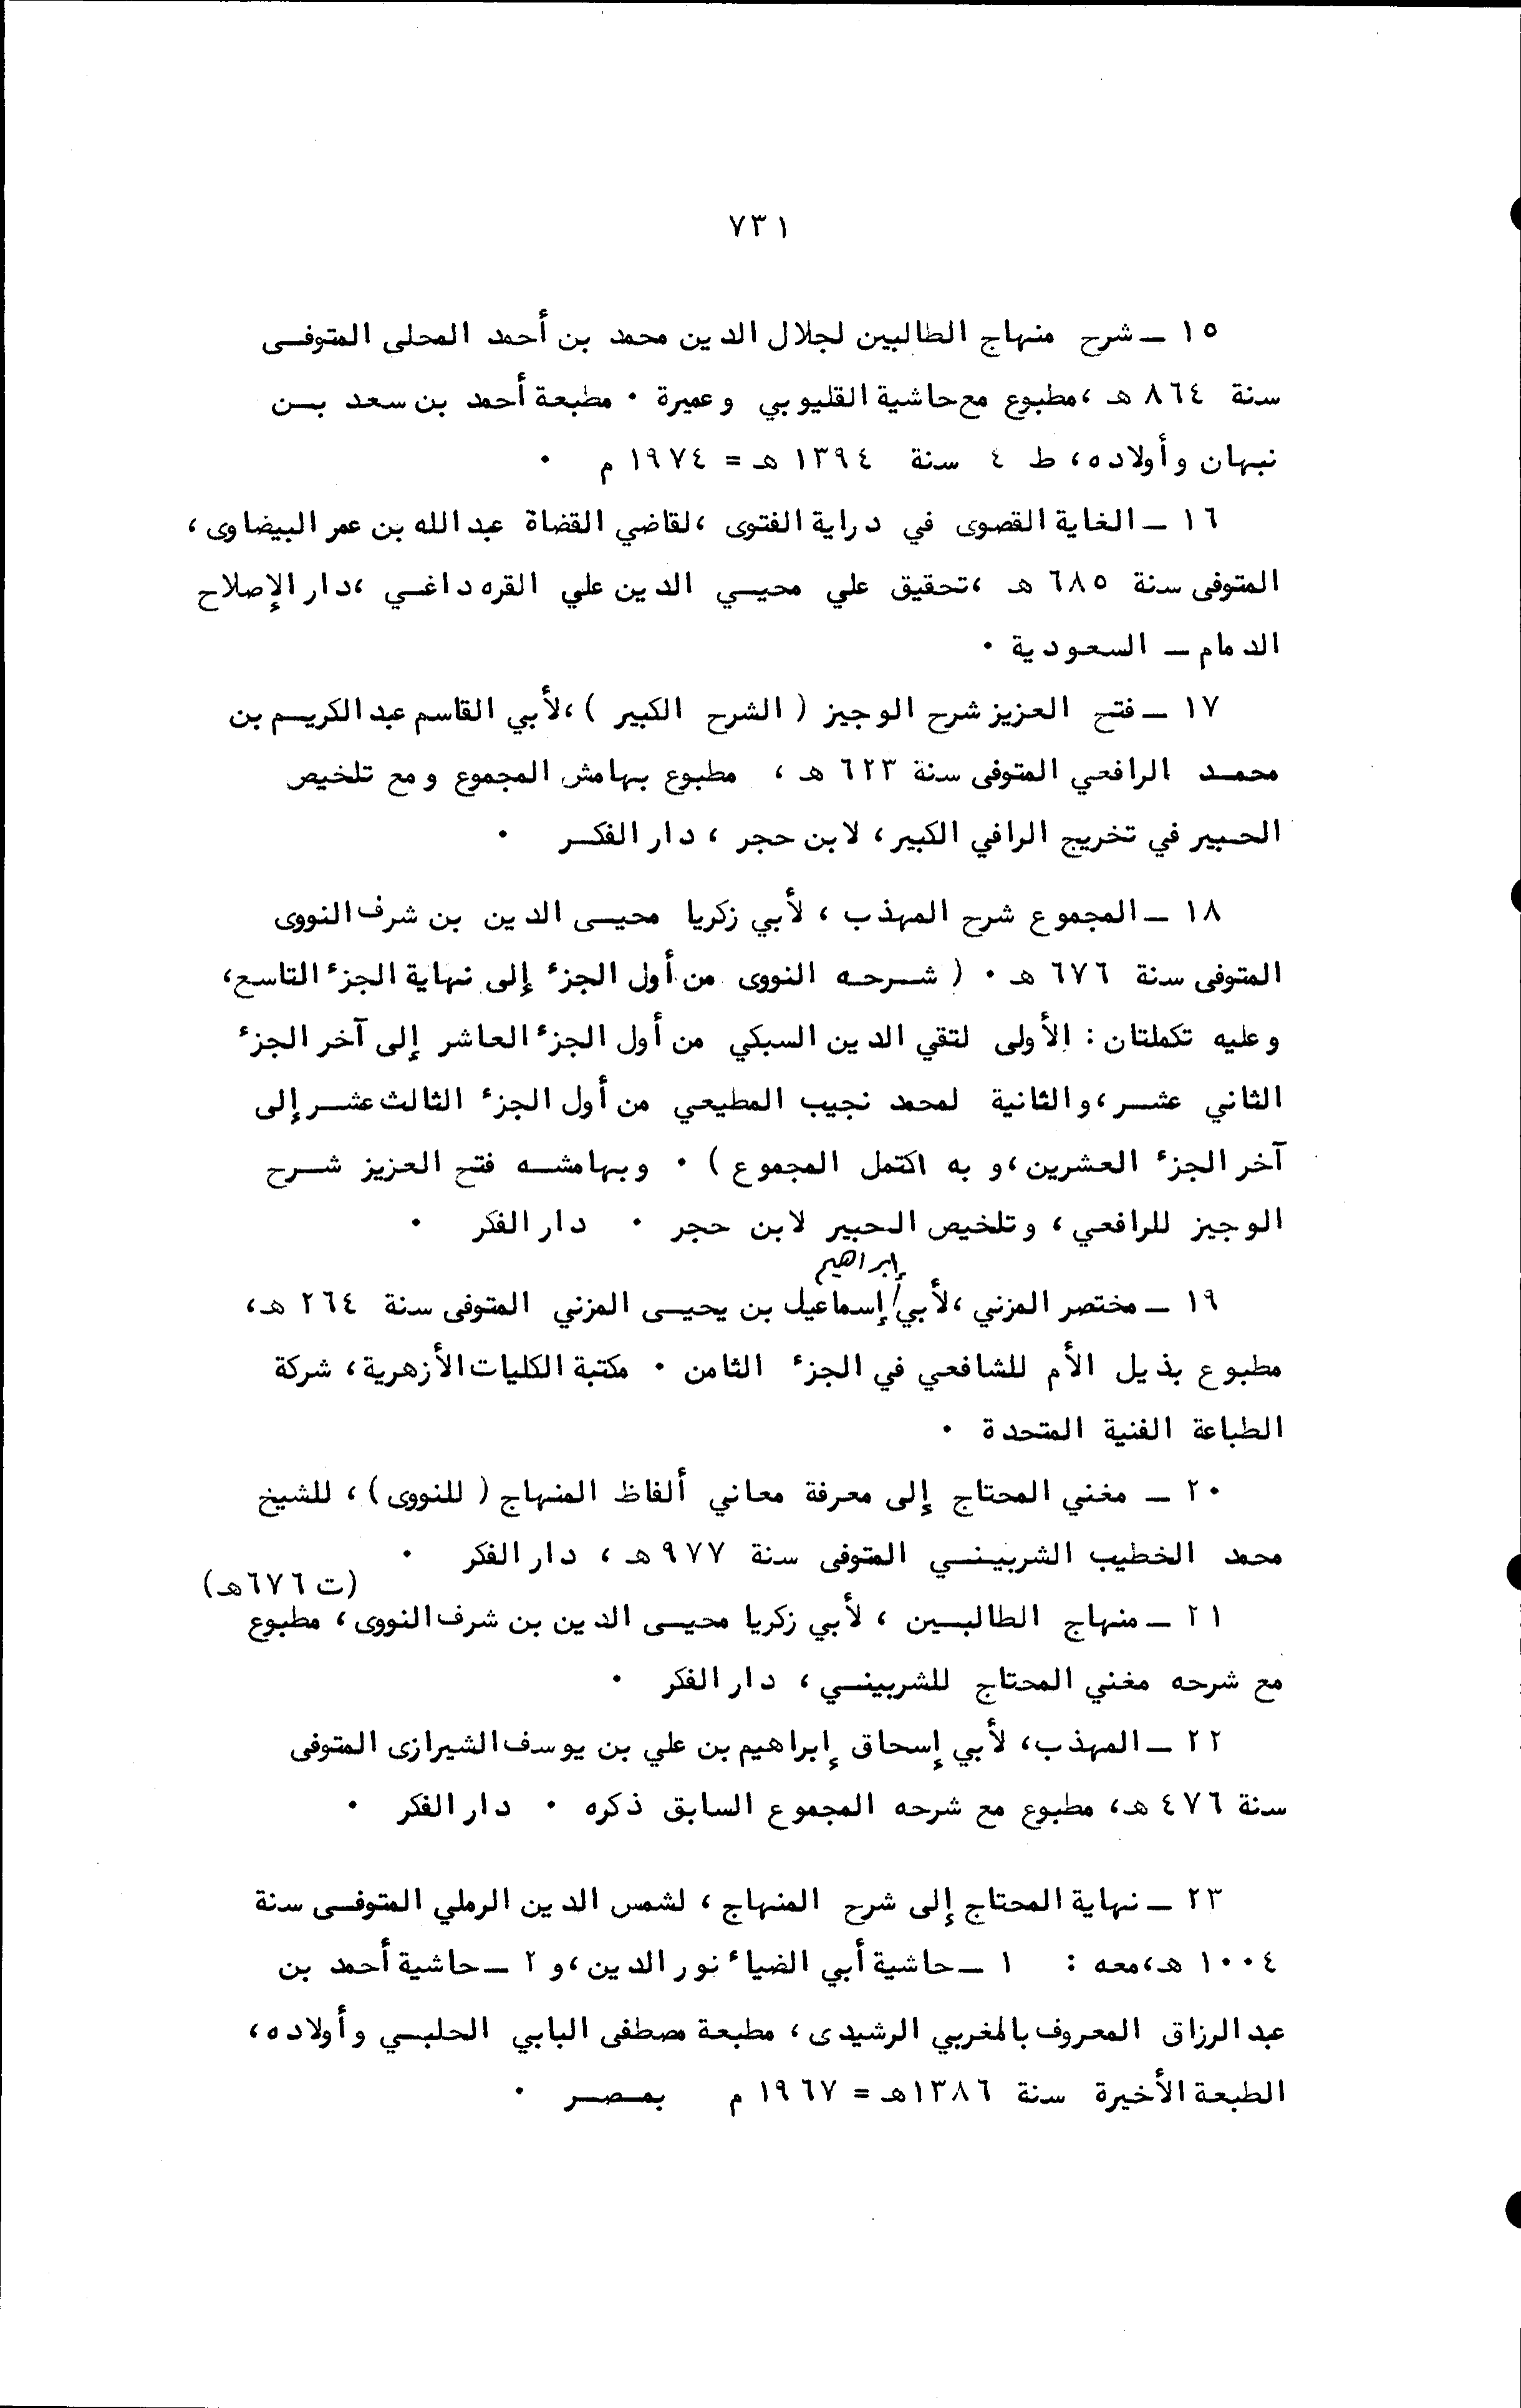 ٧٣١
١٥ ــ شرح منهاج الطالبين لجلال الدين محمد بن أحمد المحلى المتوفى
سنة ٨٦٤ هـ ،مطبوع مع حاشية القليوبي وعميرة ٠ مطبعة أحمد بن سعد بن
نبهان وأولاده، ط ٤ سنة ١٣٩٤ هـ = ١٩٧٤ م ٠
١٦ ــ الغاية القصوى في دراية الفتوى ،لقاضي القضاة عبد الله بن عمر البيضاوى،
المتوفى سنة ٦٨٥ هـ ،تحقيق علي محيي الدين علي القره داغي ،دار الإصلاح
الدمام ــ السعودية ٠
١٧ ــ فتح العزيز شرح الوجيز ( الشرح الكبير ) ،لأبي القاسم عبد الكريم بن
محمد الرافعي المتوفى سنة ٦٢٣ هـ ، مطبوع بهامش المجموع ومع تلخيص
الحبير في تخريج الرافي الكبير، لابن حجر ، دار الفكر ٠
١٨ ــ المجموع شرح المهذب ، لأبي زكريا محيى الدين بن شرف النووى
المتوفى سنة ٦٧٦ هـ ٠ ( شرحه النووى من أول الجزء إلى نهاية الجزء التاسع،
وعليه تكملتان : الأولى لتقي الدين السبكي من أول الجزء العاشر إلى آخر الجزء
الثاني عشر ،والثانية لمحمد نجيب المطيعي من أول الجزء الثالث عشر إلى
آخر الجزء العشرين ،و به اكتمل المجموع ) ٠ وبهامشه فتح العزيز شرح
الوجيز للرافعي ، وتلخيص الحبير لابن حجر ٠ دار الفكر ٠
إبراهيم
١٩ ــ مختصر المزني ،لأبي/ إسماعيل بن يحيى المزني المتوفى سنة ٢٦٤ هـ،
مطبوع بذيل الأم للشافعي في الجزء الثامن ٠ مكتبة الكليات الأزهرية ، شركة
الطباعة الفنية المتحدة ٠
٢٠ ــ مغني المحتاج إلى معرفة معاني ألفاظ المنهاج ( للنووى ) ، للشيخ
محمد الخطيب الشربيني المتوفى سنة ٩٧٧ هـ ، دار الفكر ٠
(ت ٦٧٦هـ)
٢١ ــ منهاج الطالبين ، لأبي زكريا محيى الدين بن شرف النووى ، مطبوع
مع شرحه مغني المحتاج للشربيني ، دار الفكر ٠
٢٢ ــ المهذب، لأبي إسحاق إبراهيم بن علي بن يوسف الشيرازى المتوفى
سنة ٤٧٦ هـ، مطبوع مع شرحه المجموع السابق ذكره ٠ دار الفكر ٠
٢٣ ــ نهاية المحتاج إلى شرح المنهاج ، لشمس الدين الرملي المتوفى سنة
١٠٠٤ هـ ،معه : ١ ــ حاشية أبي الضياء نور الدين ،و ٢ ــ حاشية أحمد بن
عبد الرزاق المعروف بالمغربي الرشيدى ، مطبعة مصطفى البابي الحلبي وأولاده ،
الطبعة الأخيرة سنة ١٣٨٦هـ = ١٩٦٧ م بمصر ٠